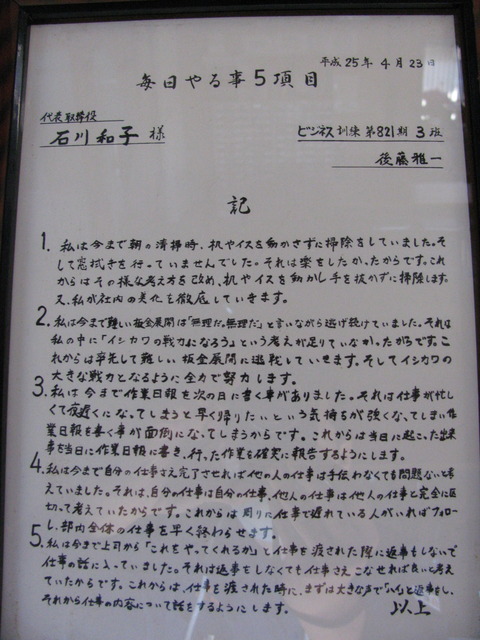 平成25年4月23日
毎日やる事5項目
代表取締役
石川和子 様
ビジネス訓練第821期3班
後藤雅一
記
1. 私は今まで朝の清掃時、机やイスを動かさずに掃除をしていました。そ
して窓拭きを行っていませんでした。それは楽をしたかったからです。これ
からはその様な考え方を改め、机やイスを動かし手を抜かずに掃除します。
又、私が社内の美化を徹底していきます。
2. 私は今まで難しい板金展開は「無理だ。無理だ」と言いながら逃げ続けていました。それは
私の中に「イシカワの戦力になろう」という考えが足りていなかったからです。こ
れからは率先して難しい板金展開に挑戦していきます。そしてイシカワの
大きな戦力となるように全力で努力します。
3. 私は今まで作業日報を次の日に書く事がありました。それは仕事が忙し
くて夜遅くになってしまうと早く帰りたいという気持ちが強くなってしまい作
業日報を書く事が面倒になってしまうからです。これからは当日に起こった出来
事を当日に作業日報に書き、行った作業を確実に報告するようにします。
4. 私は今まで自分の仕事さえ完了させれば他の人の仕事は手伝わなくても問題ないと考
えていました。それは、自分の仕事は自分の仕事、他人の仕事は他人の仕事と完全に区
切って考えていたからです。これからは周りに仕事で遅れている人がいればフォロー
し、部内全体の仕事を早く終わらせます。
5. 私は今まで上司から「これをやってくれるか」と仕事を渡された際に返事をしないで
仕事の話に入っていました。それは返事をしなくても仕事さえこなせれば良いと考え
ていたからです。これからは、仕事を渡された時に、まずは大きな声で「ハイ」と返事をし、
それから仕事の内容について話をするようにします。
以上